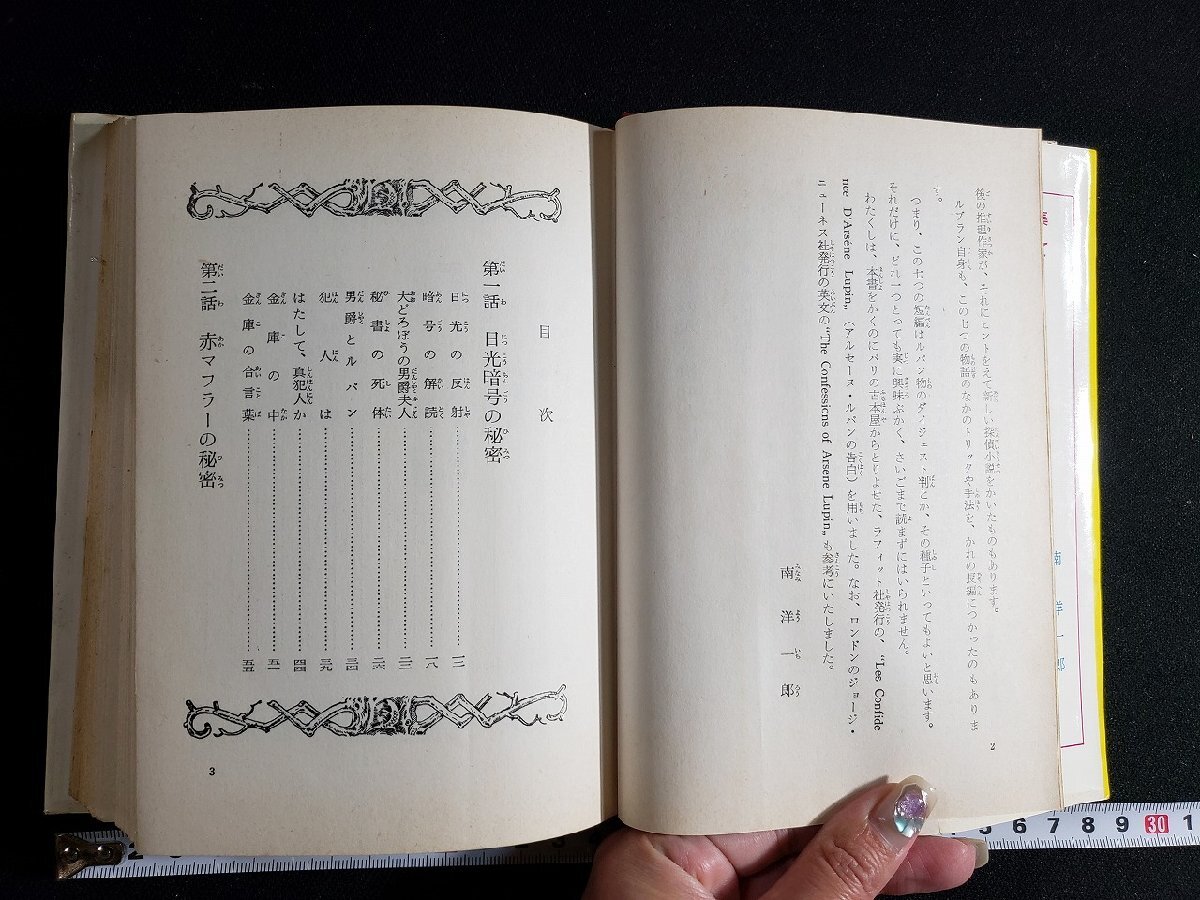 後の推理作家が、これにヒントをえて新しい探偵小説をかいたものもあります。
ルブラン自身も、この七つの物語のなかのトリックや手法を、かれの長編につかったのもありま
す。
つまり、この七つの短編はルパン物のダイジェスト判とか、その種子といってもよいと思います。
それだけに、どれ一つとっても実に興味ぶかく、さいごまで読まずにはいられません。
わたくしは、本書をかくのにパリの古本屋からとりよせた、ラフィット社発行の、“Les Confide
nce D'Arséne Lupin„（アルセーヌ・ルパンの告白）を用いました。なお、ロンドンのジョージ・
ニューネス社発行の英文の“The Confessions of Arsene Lupin„も参考にいたしました。
南洋一郎
2
目次
第一話 日光暗号の秘密
日光の反射……一二
暗号の解読……一八
大どろぼうの男爵夫人……二三
秘書の死体……二六
男爵とルパン……三四
犯人は……三九
はたして、真犯人か……四四
金庫の中……五一
金庫の合言葉……五五
第二話 赤マフラーの秘密
3
南洋一郎
5 6 7 8 9 30 1